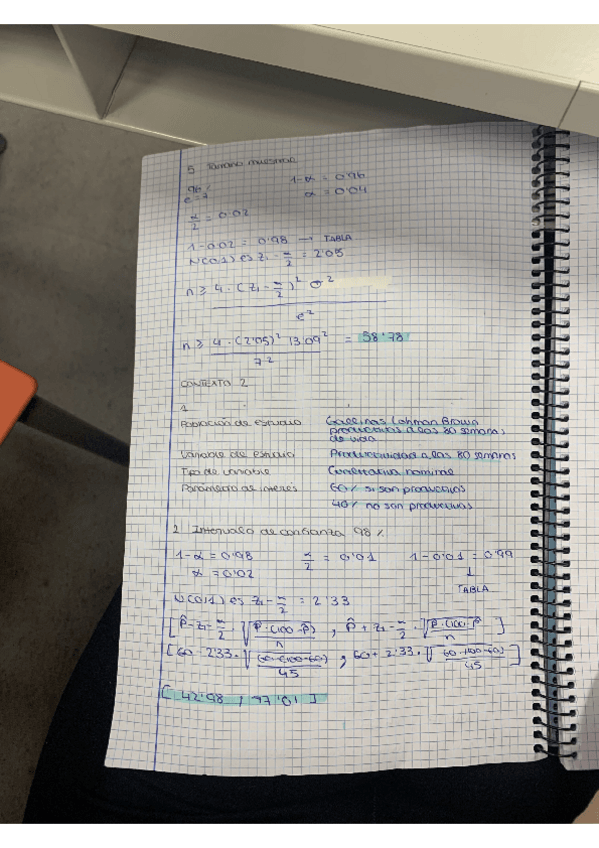 5 Tamaño muestral
96% 1-α = 0'96
e=7 α = 0'04
α/2 = 0'02
1-0'02 = 0'98 → TABLA
N(0,1) es z1-α/2 = 2'05
n ≥ 4 · (z1-α/2)² σ²
e²
n ≥ 4 · (2'05)² 13'09² = 58'78
7²
CONTEXTO 2
1
Población de estudio Gallinas Lohman Brown
productivas a las 80 semanas
de vida
Variable de estudio Productividad a las 80 semanas
Tipo de variable Cualitativa nominal
Parámetro de interés 60% si son productivas
40% no son productivas
2 Intervalo de confianza 98%
1-α = 0'98 α/2 = 0'01 1-0'01 = 0'99
α = 0'02 ↓
TABLA
N(0,1) es z1-α/2 = 2'33
[p̂-z1-α/2 · √p̂·(100-p̂)/n , p̂+z1-α/2 · √p̂·(100-p̂)/n]
[60-2'33·√60·(100-60)/45 , 60+2'33·√60·(100-60)/45]
[42'98 , 77'01]